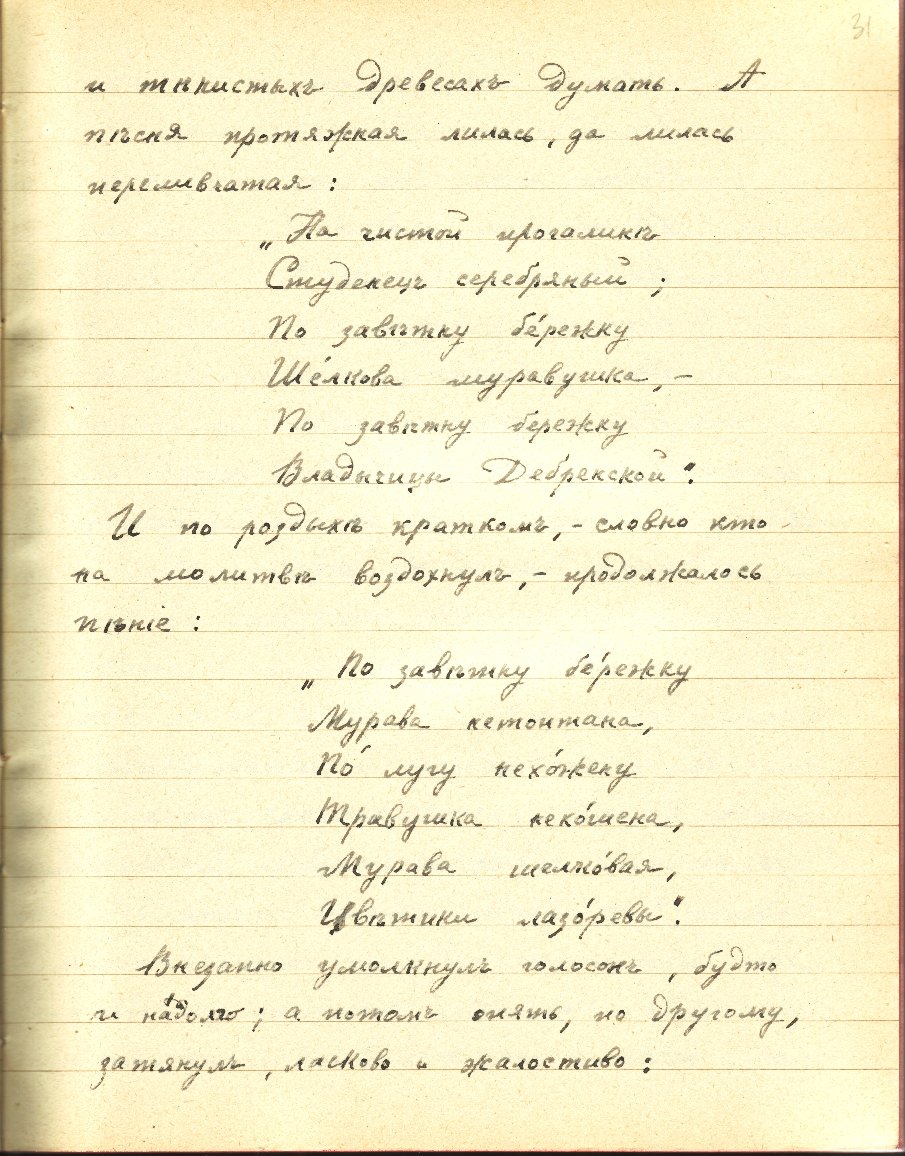 31
и тѣнистыхъ древесахъ думать. А
пѣсня протяжная лилась, да лилась
переливчатая:
„На чистой прогалинѣ
Студенецъ серебряный;
По завѣтну бе́режку
Ше́лкова муравушка, –
По завѣтну бережку
Владычицы Дебренской".
И по роздыхѣ краткомъ, – словно кто
на молитвѣ воздохнулъ, – продолжалось
пѣніе:
„По завѣтну бе́режку
Мурава нетоптана,
По́ лугу нехо́жену
Травушка неко́шена,
Мурава шелко́вая,
Цвѣтики лазо́ревы".
Внезапно умолкнулъ голосокъ, будто
и на́долго; а потомъ опять, по другому,
затянулъ, ласково и жалостиво: